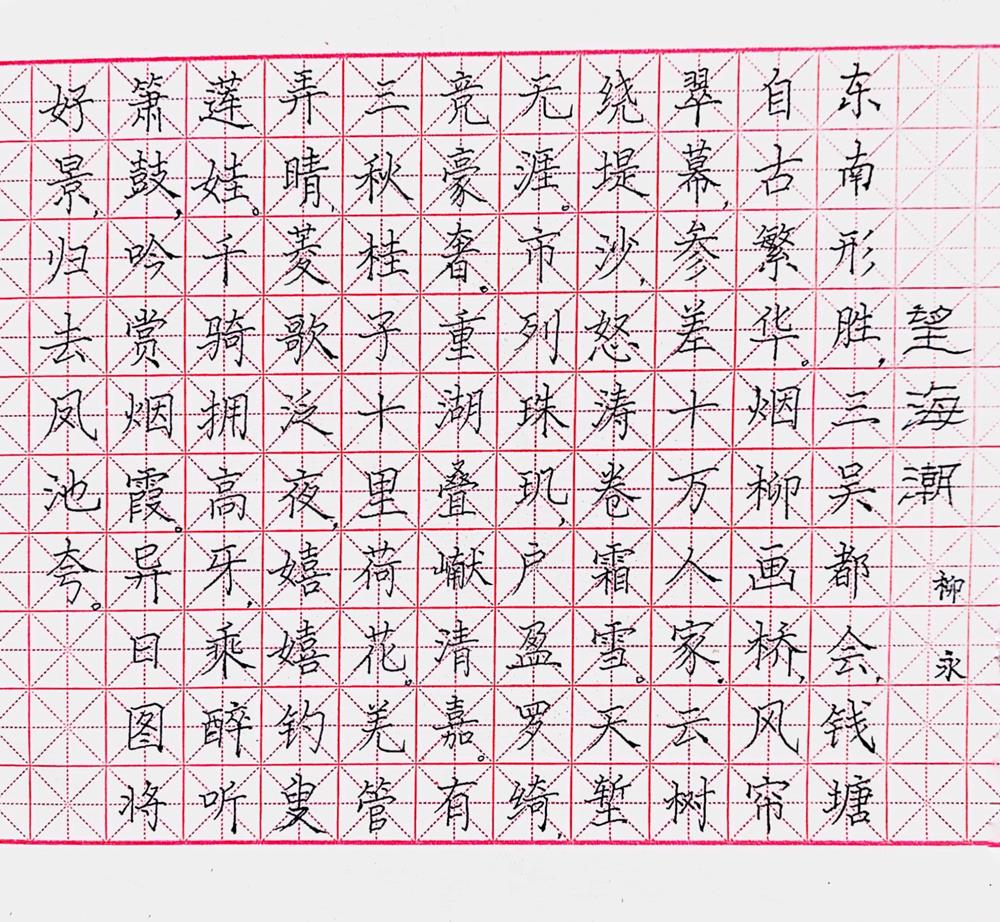 望海潮
柳永
东南形胜,三吴都会,钱塘
自古繁华。烟柳画桥,风帘
翠幕,参差十万人家.云树
绕堤沙,怒涛卷霜雪。天堑
无涯。市列珠玑,户盈罗绮,
竞豪奢。重湖叠巘清嘉。有
三秋桂子十里荷花。羌管
弄晴,菱歌泛夜,嬉嬉钓叟
莲娃。千骑拥高牙,乘醉听
箫鼓,吟赏烟霞。异日图将
好景,归去凤池夸。